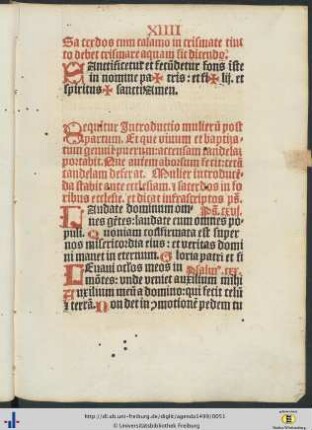 XIIII
Sacerdos cum calamo in crismate tinc
to debet crismare aquam sic dicendo.
SAnctificetur et fecūdetur fons iste
in nomine pa✠tris: et fi✠lij. et
spiritus✠sancti Amen.
Sequitur Introductio mulierū post
partum. Et que viuum et baptisa-
tum genuit puerum: accensam candelam
portabit. Que autem aborsum fecit: certā
candelam deferat. Mulier introducē-
da stabit ante ecclesiam. ⁊ sacerdos in fo
ribus ecclesie. et dicat infrascriptos ps̄.
LAudate dominum om- Ps̄. cxvi.
nes gētes: laudate eum omnes po-
puli. Quoniam confirmata est super
nos misericordia eius: et veritas domi
ni manet in eternum. Gloria patri et fi
LEuaui oculos meos in Psalm⁹. cxx.
mōtes: vnde veniet auxilium mihi
Auxilium meū a domino: qui fecit celū
⁊ terrā. Non det in ɔmotionē pedem tu
http://dl.ub.uni-freiburg.de/diglit/agenda1490/0051
© Universitätsbibliothek Freiburg